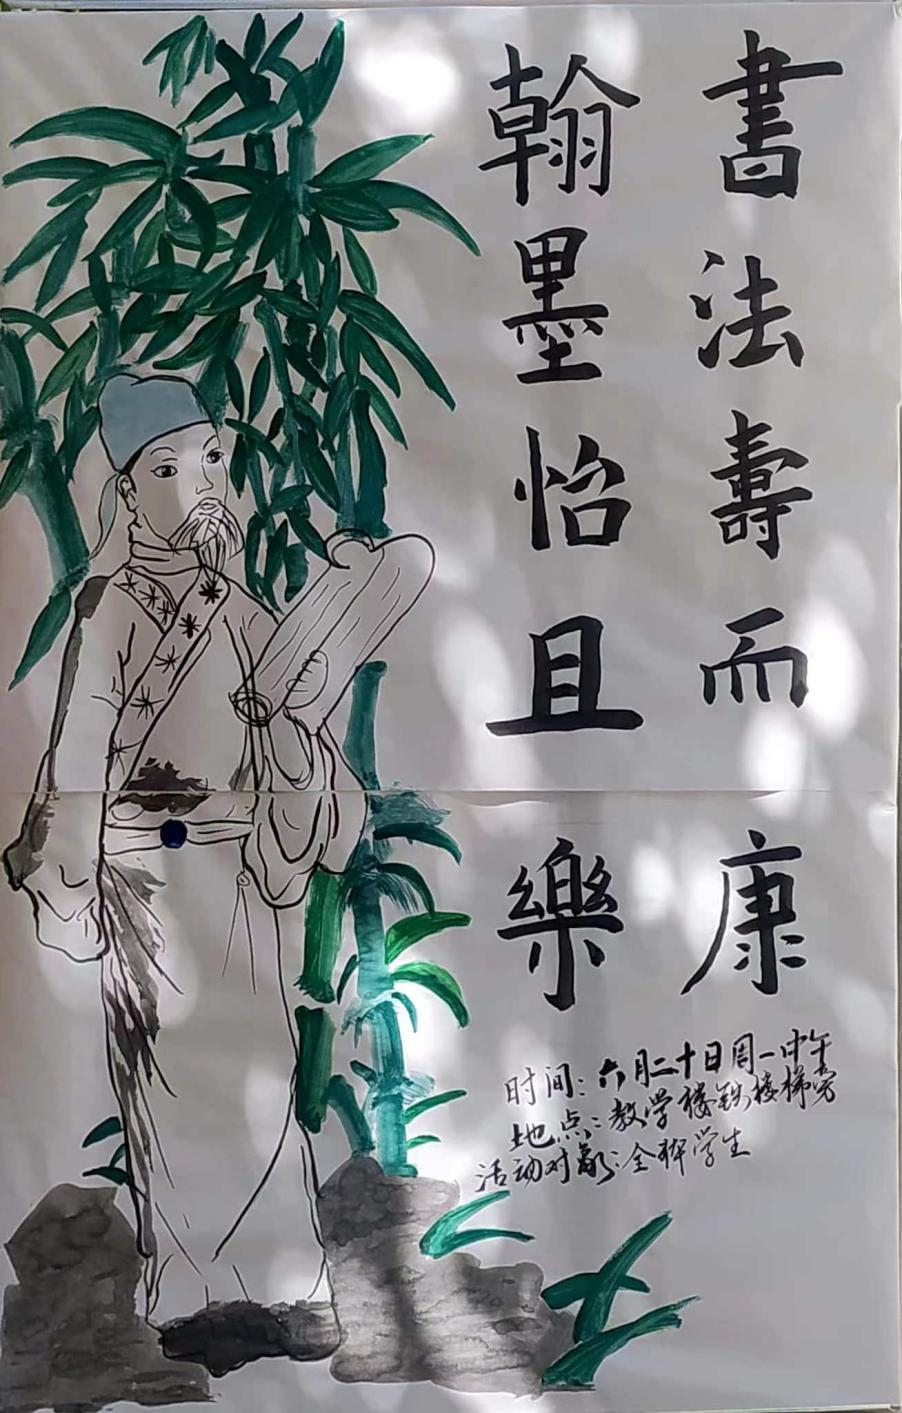 書法壽而康
翰墨怡且樂
时间：六月二十日周一中午
地点：教学楼铁楼梯旁
活动对象：全体学生